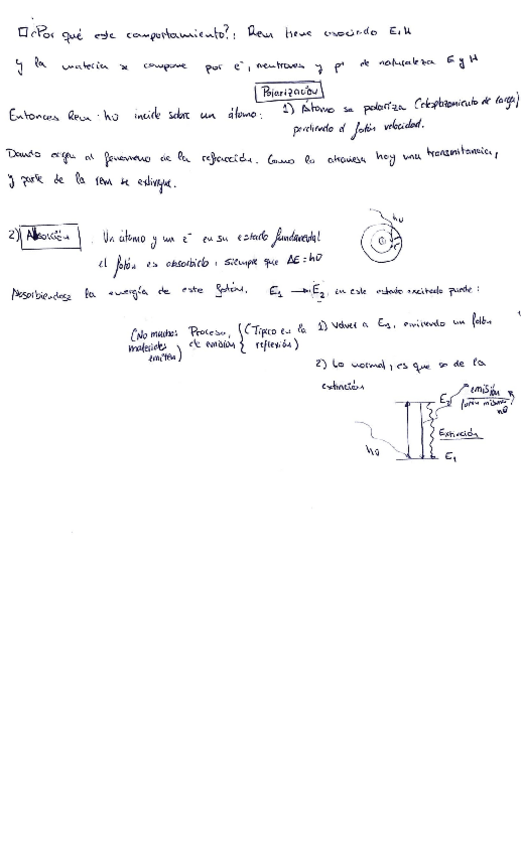 ¿Por qué este comportamiento?: Rem tiene asociado E, H
y la materia se compone por e⁻, neutrones y p⁺ de naturaleza E y H
Polarización
Entonces Rem: hυ incide sobre un átomo: 1) Átomo se polariza (desplazamiento de carga)
perdiendo el fotón velocidad.
Dando origen al fenómeno de la refracción. Como lo atraviesa hay una transmitancia,
y parte de la rem se extingue.
2) Absorción . Un átomo y un e⁻ en su estado fundamental
el fotón es absorbido, siempre que ΔE = hυ
hυ
Absorbiendose la energía de este fotón. E₁ → E₂, en este estado excitado puede:
(No muchos materiales emiten) Proceso de emisión (Típico en la reflexión) 1) Volver a E₁, emitiendo un fotón
2) Lo normal, es que se de la
extinción
E₂ emisión
fotón mismo hυ
Extinción
hυ E₁